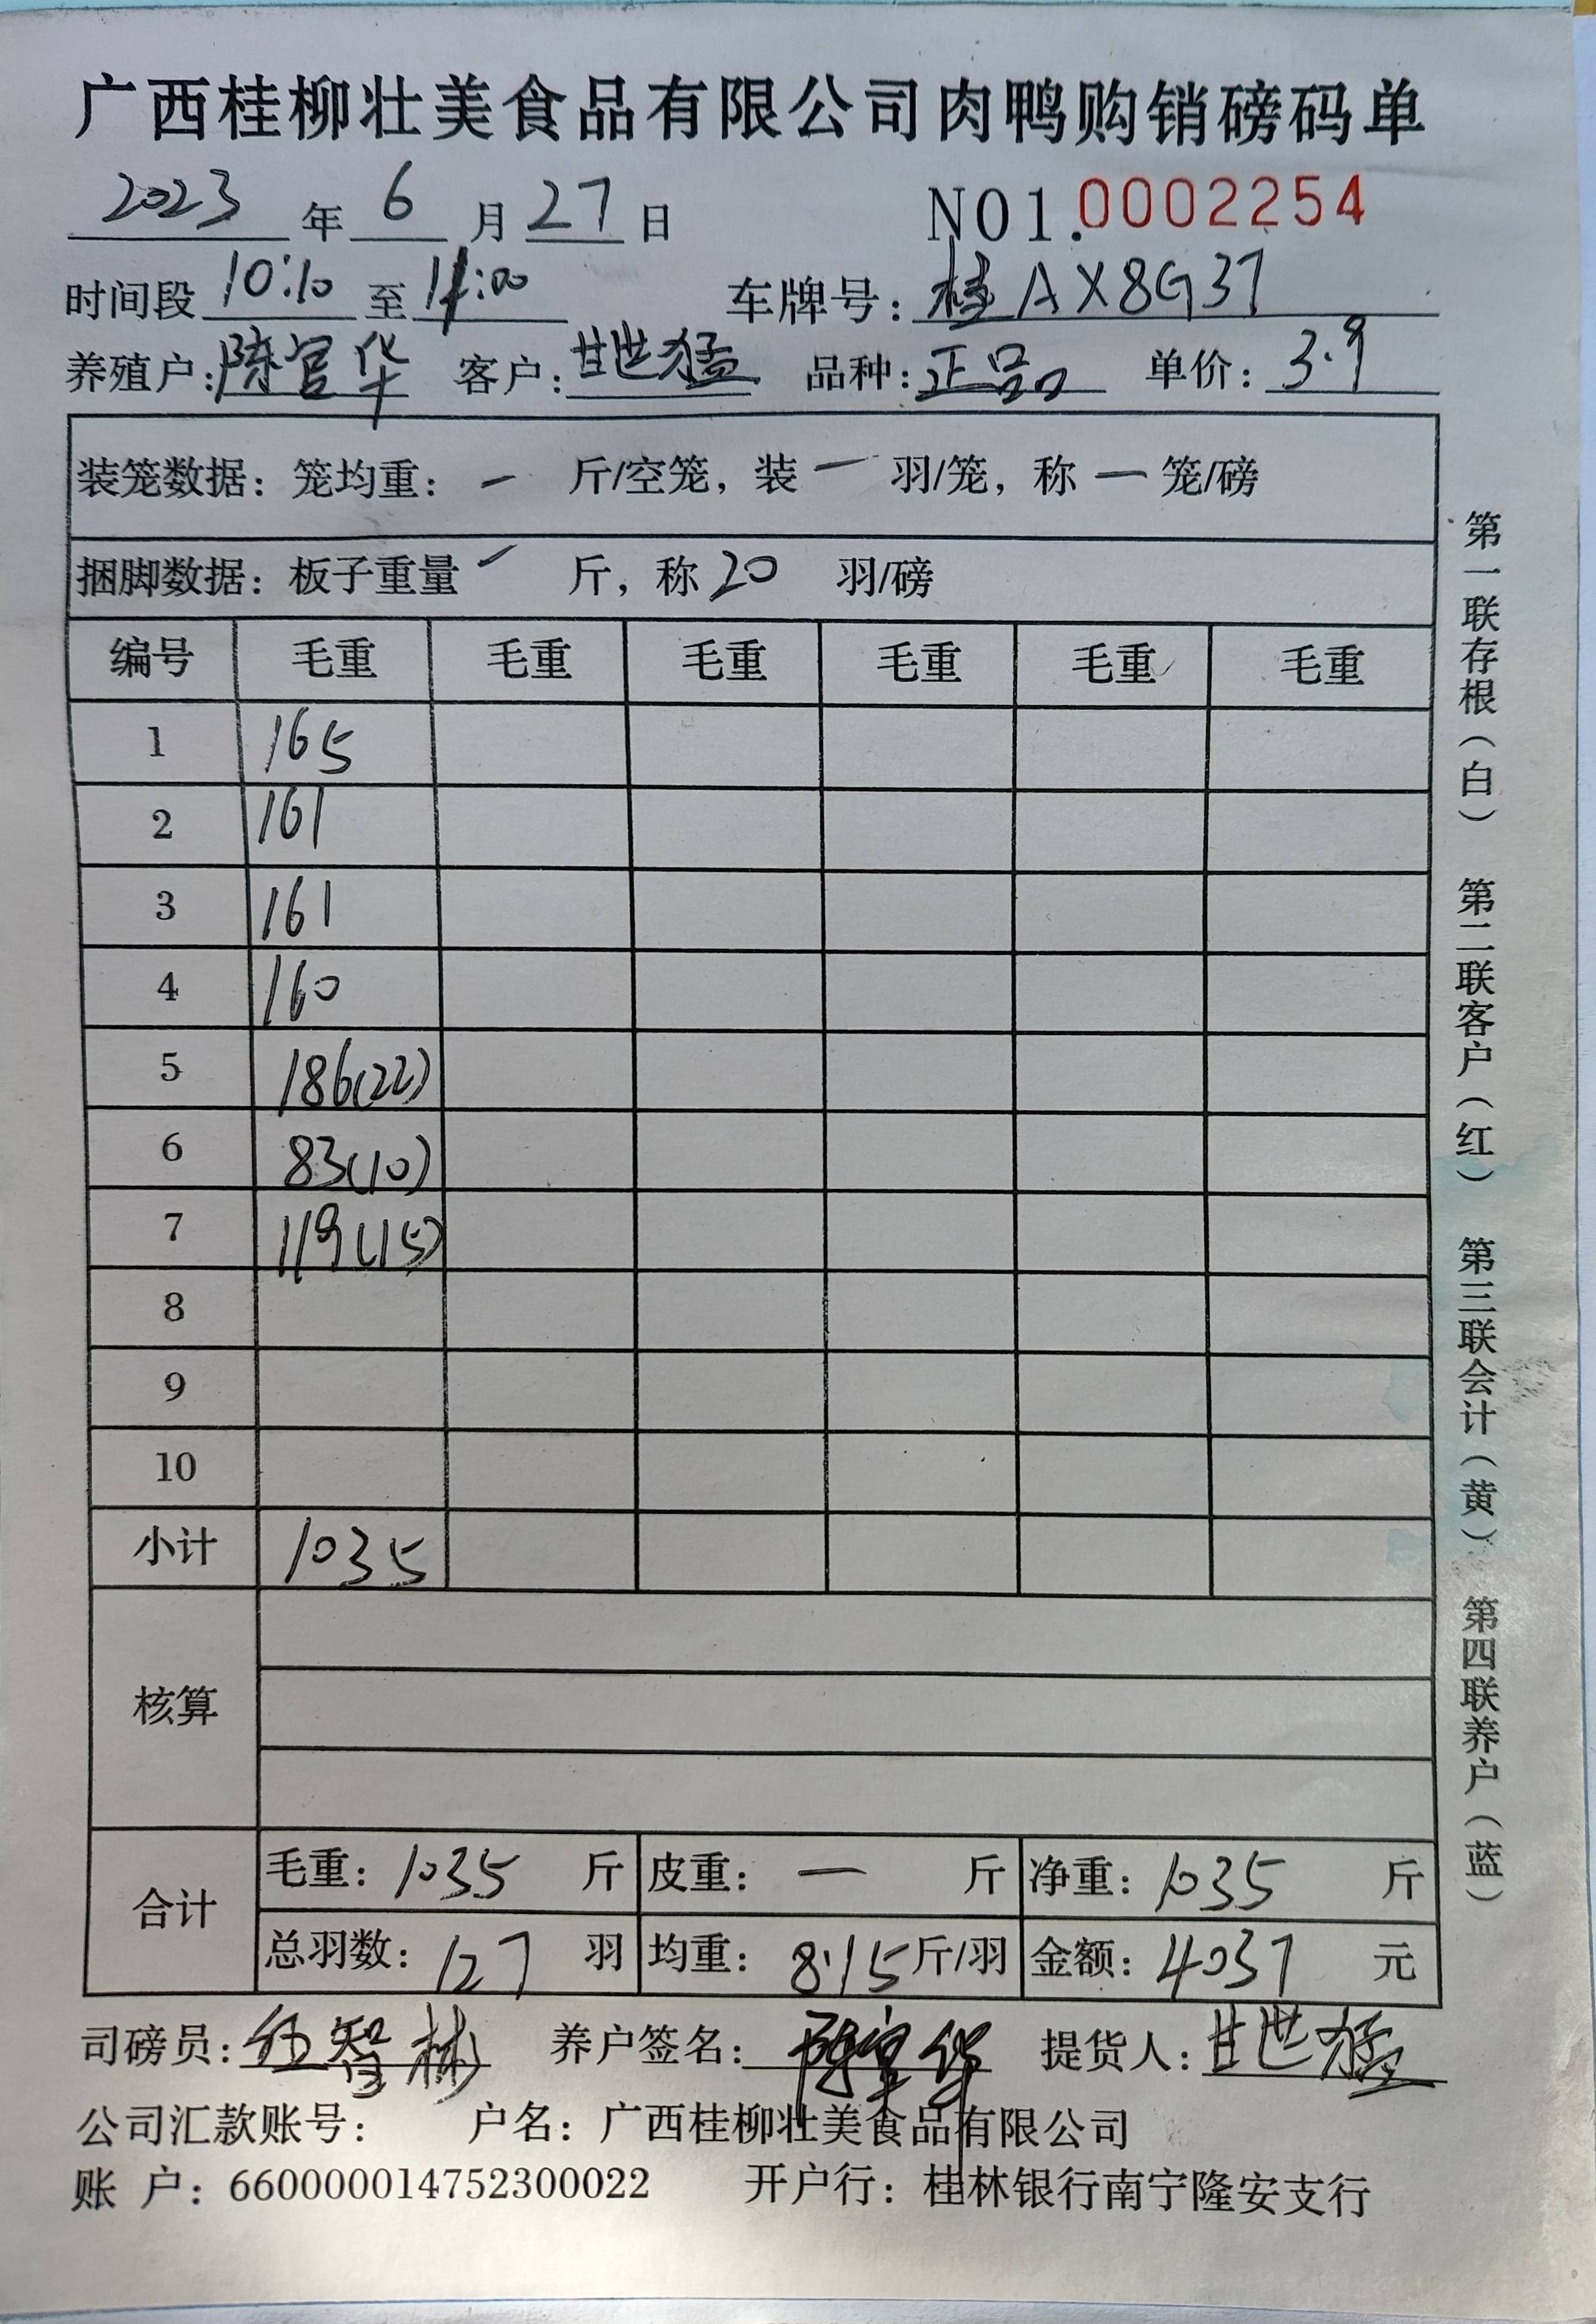 广西桂柳壮美食品有限公司肉鸭购销磅码单
2023 年 6 月 27 日 NO1.0002254
时间段 10:10 至 11:00 车牌号：桂AX8G37
养殖户：陈官华 客户：甘世猛 品种：正品 单价：3.9
装笼数据：笼均重：一 斤/空笼，装 一 羽/笼，称 一 笼/磅
捆脚数据：板子重量 一 斤，称 20 羽/磅
编号 毛重 毛重 毛重 毛重 毛重 毛重
1 165
2 161
3 161
4 160
5 186(22)
6 83(10)
7 119(15)
8
9
10
小计 1035
核算
合计 毛重：1035 斤 皮重：一 斤 净重：1035 斤
总羽数：127 羽 均重：8.15 斤/羽 金额：4037 元
司磅员：智彬 养户签名：陈官华 提货人：甘世猛
公司汇款账号： 户名：广西桂柳壮美食品有限公司
账 户：660000014752300022 开户行：桂林银行南宁隆安支行
第一联存根（白） 第二联客户（红） 第三联会计（黄） 第四联养户（蓝）